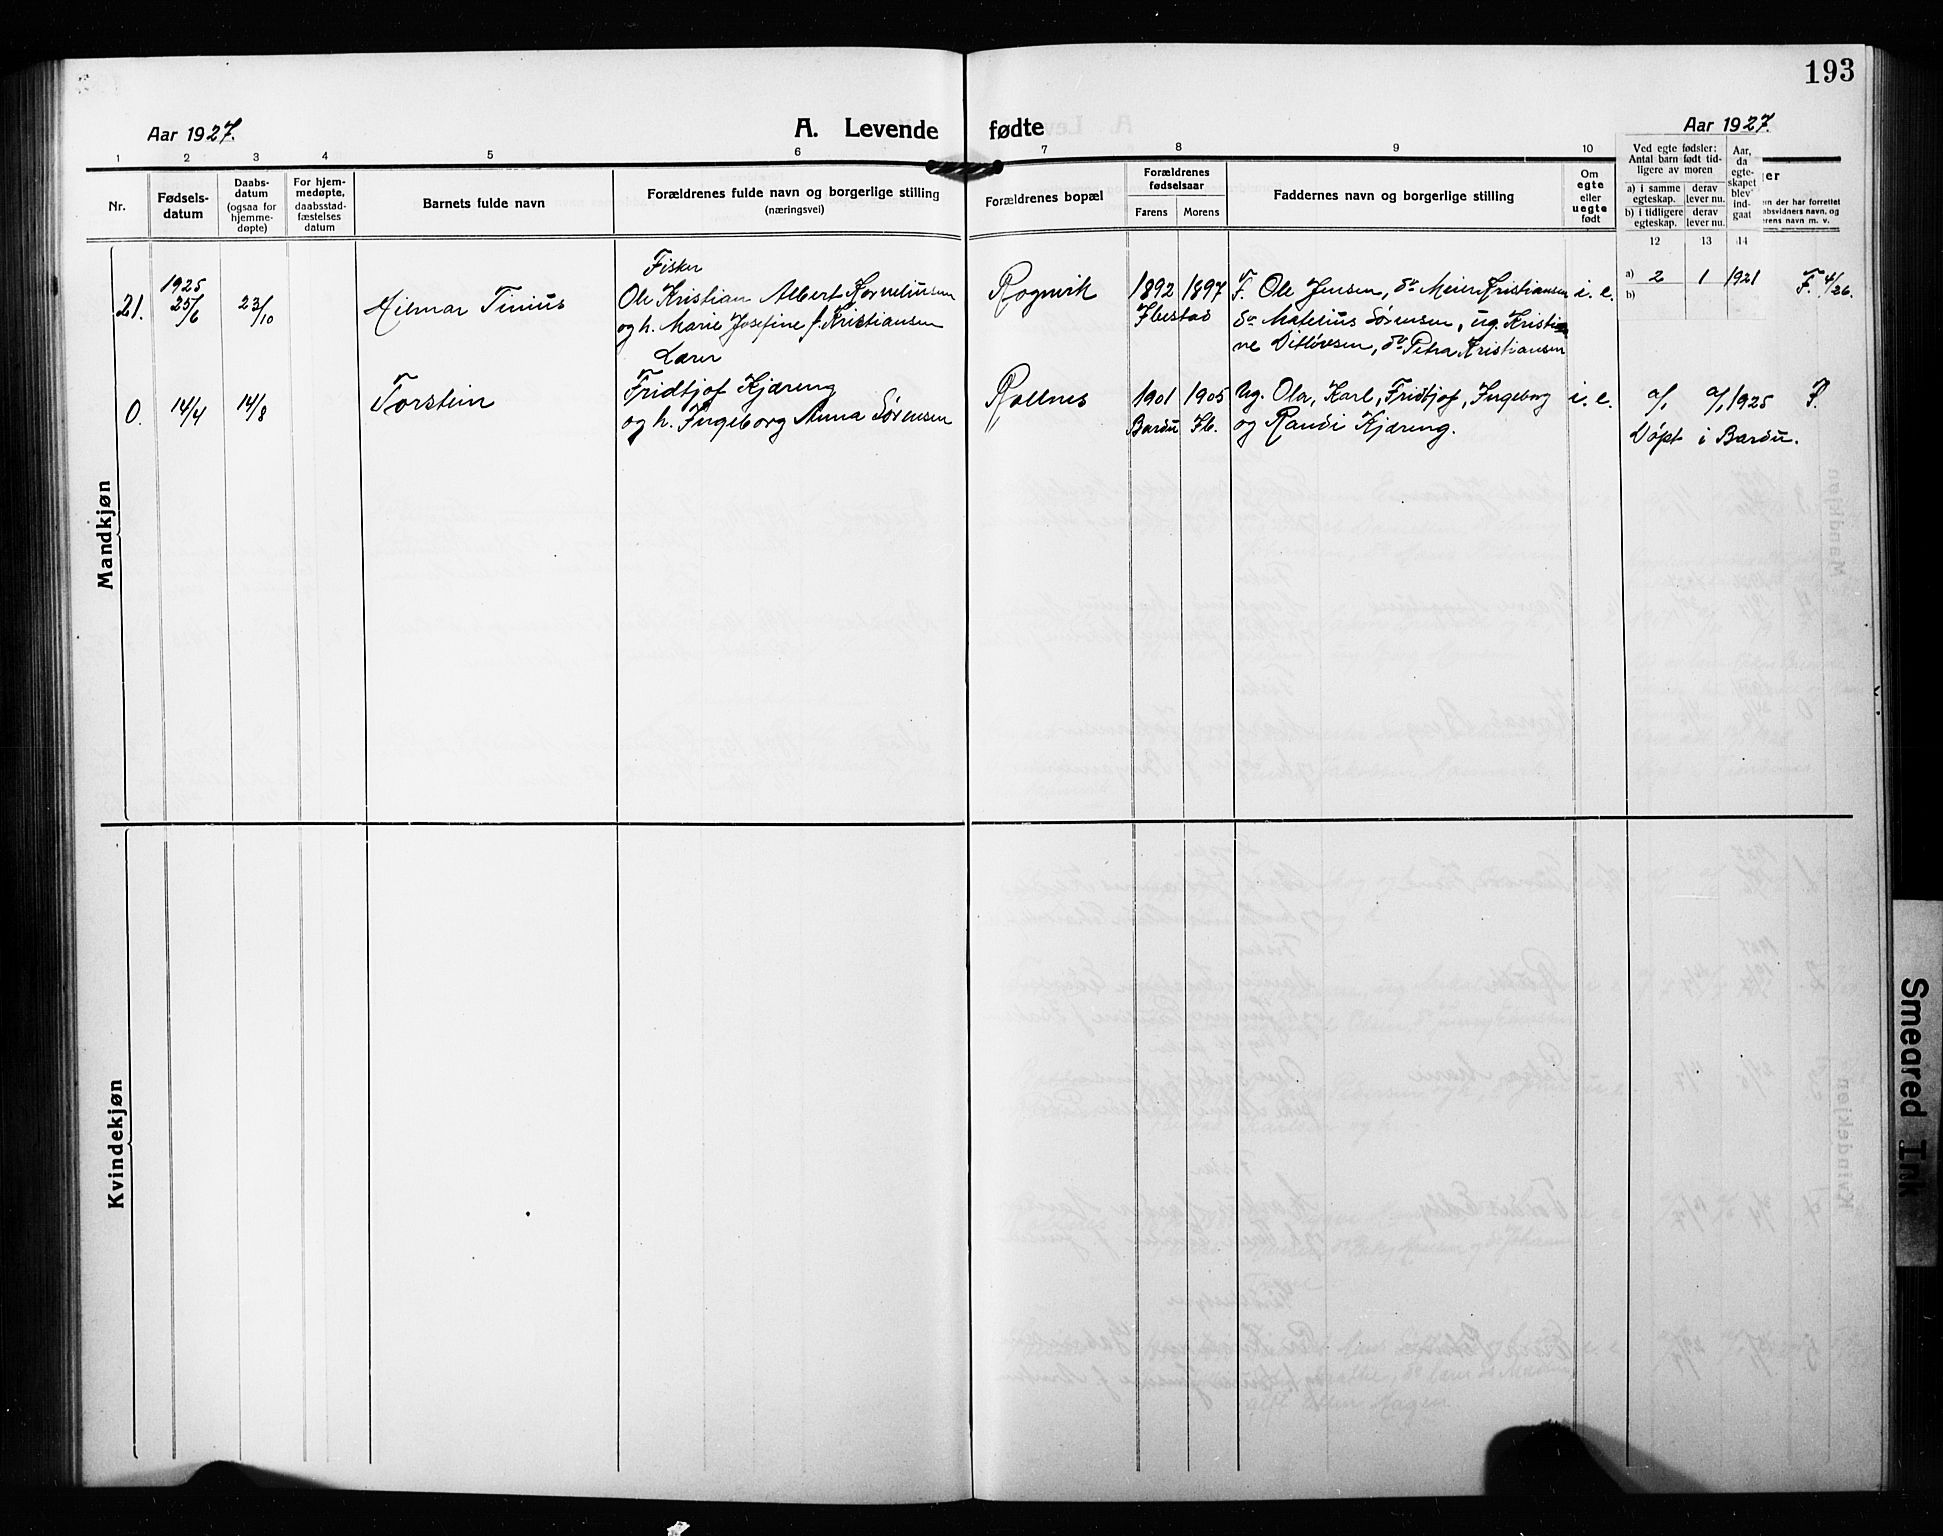 193
Aar 1927.
A. Levende fødte
Aar 1927.
1 2 3 4 5 6 7 8 9 10
Nr.
Fødsels-
datum
Daabs-
datum
(ogsaa for
hjemme-
døpte)
For hjem-
medøpte,
daabsstad-
fæstelses
datum
Barnets fulde navn
Forældrenes fulde navn og borgerlige stilling
(næringsvei)
Forældrenes bopæl
Forældrenes
fødselsaar
Farens Morens
Faddernes navn og borgerlige stilling
Om
egte
eller
uegte
født
Ved egte fødsler:
Antal barn født tid-
ligere av moren
a) i samme
egteskap.
derav
lever nu.
b) i tidligere
egteskap.
derav
lever nu.
Aar,
da
egte-
skapet
blev
ind-
gaat
12 13 14
en der har forrettet
absvidners navn, og
erens navn m. v.
Mandkjøn
21.
1925
25/6
23/10
Hilmar Tinius
Fisker
Ole Kristian Albert Korneliussen
og h. Marie Josefine f. Kristiansen
Rognvik
1892 1897
Ibestad
F. Ole Jensen, do Meier Kristiansen
do Matelius Sørensen, ug. Kristi
ne Ditlovsen, do Petra Kristiansen
i. e.
a) 2 1 1921
b)
F. 4/26.
0.
14/4
14/8
Torstein
Lærer
Fridtjof Kjæreng
og h. Ingeborg Anna Sørensen
Rollnes
1901 1905
Bardu Ib.
Ug. Ola, Karl, Fridtjof, Ingeborg
og Randi Kjæreng.
i. e.
a/1 a/1 1925 F.
Døpt i Bardu.
Kvindekjøn
Smeared Ink